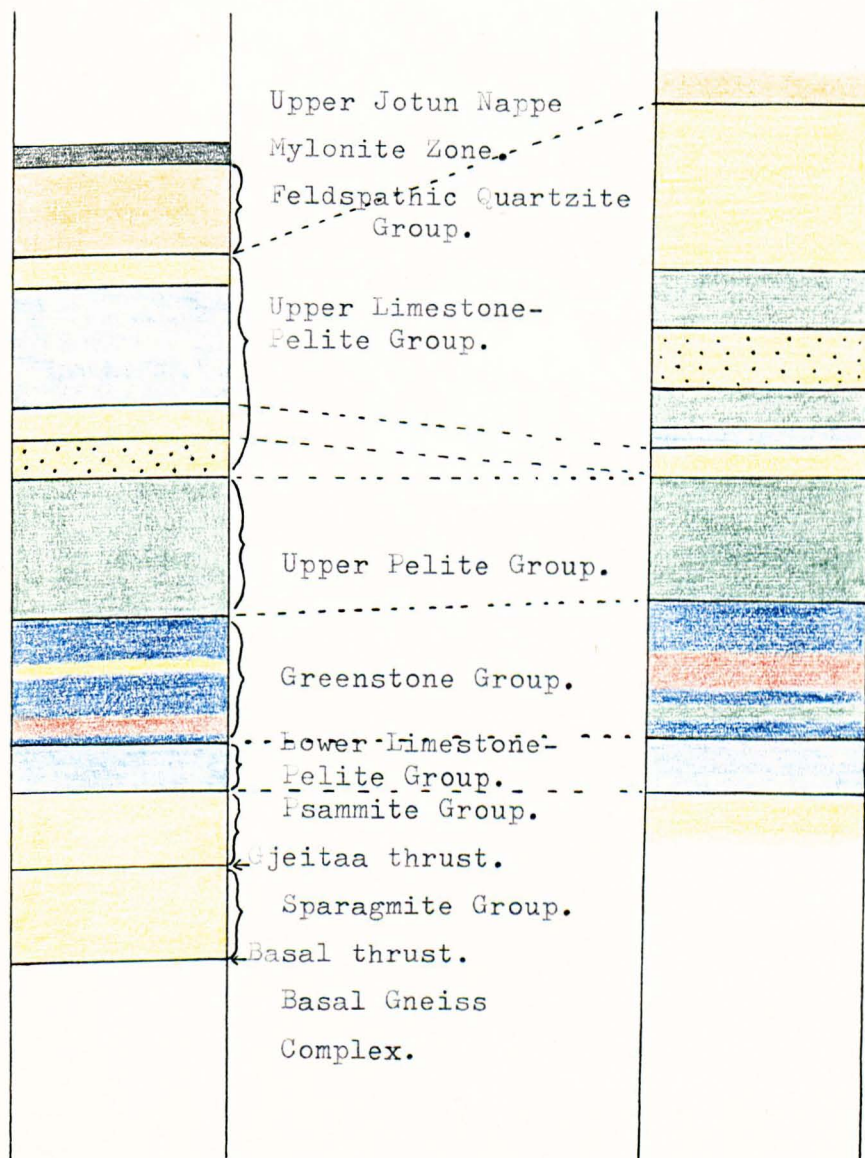 Upper Jotun Nappe
Mylonite Zone.
Feldspathic Quartzite
Group.
Upper Limestone-
Pelite Group.
Upper Pelite Group.
Greenstone Group.
Lower Limestone-
Pelite Group.
Psammite Group.
Gjeitaa thrust.
Sparagmite Group.
Basal thrust.
Basal Gneiss
Complex.